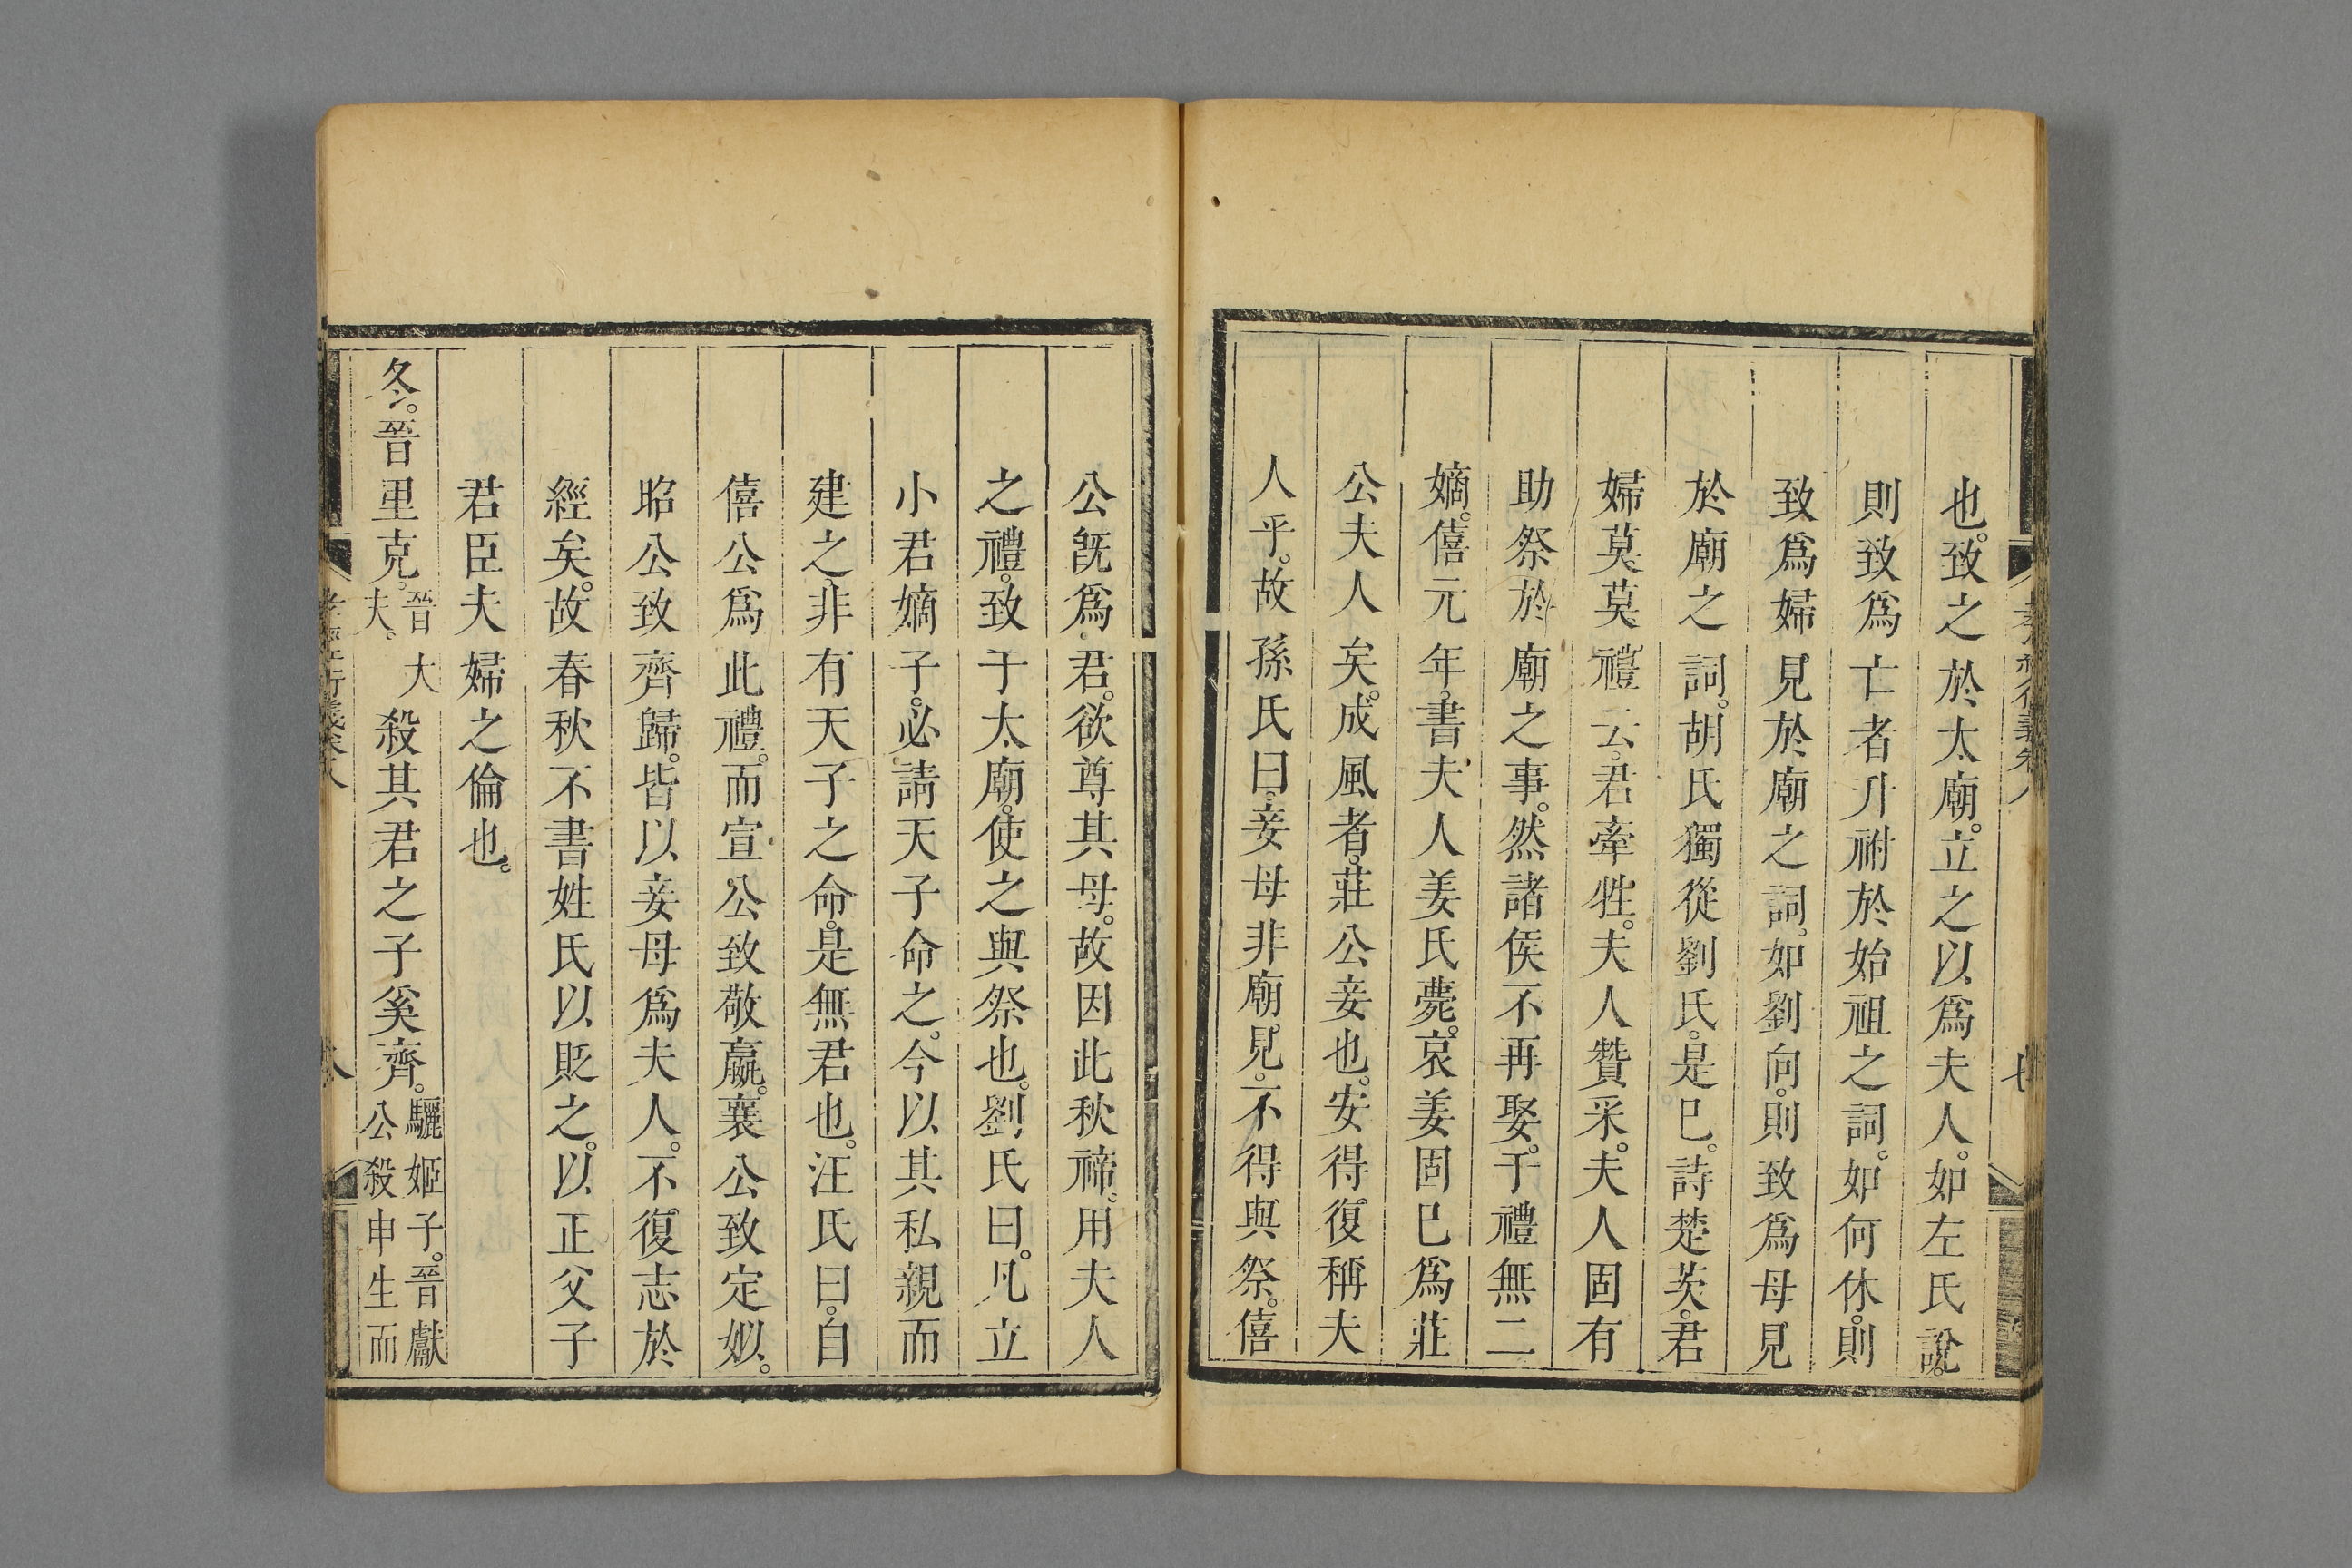 也。致之於太廟。立之以爲夫人。如左氏說。
則致爲亡者升祔於始祖之詞。如何休。則
致爲婦見於廟之詞。如劉向。則致爲母見
於廟之詞。胡氏獨從劉氏。是巳。詩楚茨。君
婦莫莫。禮云。君牽牲。夫人贊采。夫人固有
助祭於廟之事。然諸侯不再娶。于禮無二
嫡。僖元年。書夫人姜氏薨。哀姜固巳爲莊
公夫人矣。成風者。莊公妾也。安得復稱夫
人乎。故孫氏曰。妾母非廟見。不得與祭。僖
公旣爲君。欲尊其母。故因此秋禘。用夫人
之禮。致于太廟。使之與祭也。劉氏曰。凡立
小君嫡子。必請天子命之。今以其私親而
建之。非有天子之命。是無君也。汪氏曰。自
僖公爲此禮。而宣公致敬嬴。襄公致定姒。
昭公致齊歸。皆以妾母爲夫人。不復志於
經矣。故春秋不書姓氏以貶之。以正父子
君臣夫婦之倫也。
冬。晉里克。晉大夫。殺其君之子奚齊。驪姬子。晉獻公殺申生而
孝經衍義卷八
七
孝經衍義卷八
八